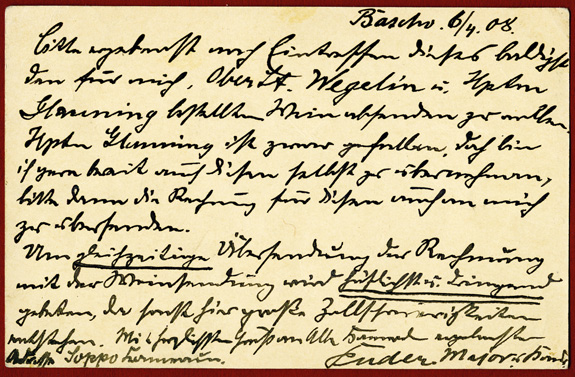 Bascho. 6/4. 08.
Bitte ergebenst nach Eintreffen dieses baldigst
den für mich, Oberlt. Wegelin u. Hptm
Glauning bestellten Wein absenden zu wollen.
Hptm Glauning ist zwar gefallen, doch bin
ich gern bereit auch diesen selbst zu übernehmen,
bitte dann die Rechnung für diesen auch an mich
zu übersenden.
Um gleichzeitige Übersendung der Rechnung
mit der Weinsendung wird höflichst u. dringend
gebeten, da sonst hier große Zollschwierigkeiten
entstehen. Mit herzlichsten Gruß an Alle ergebenster
Adresse Soppo Kamerun. Puder. Major u.